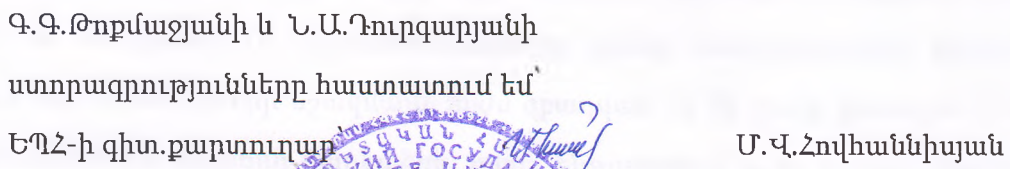 Գ.Գ.Թոքմաջյանի և Ն.Ա.Դուրգարյանի
ստորագրությունները հաստատում եմ
ԵՊՀ-ի գիտ.քարտուղար Մ.Վ.Հովհաննիսյան